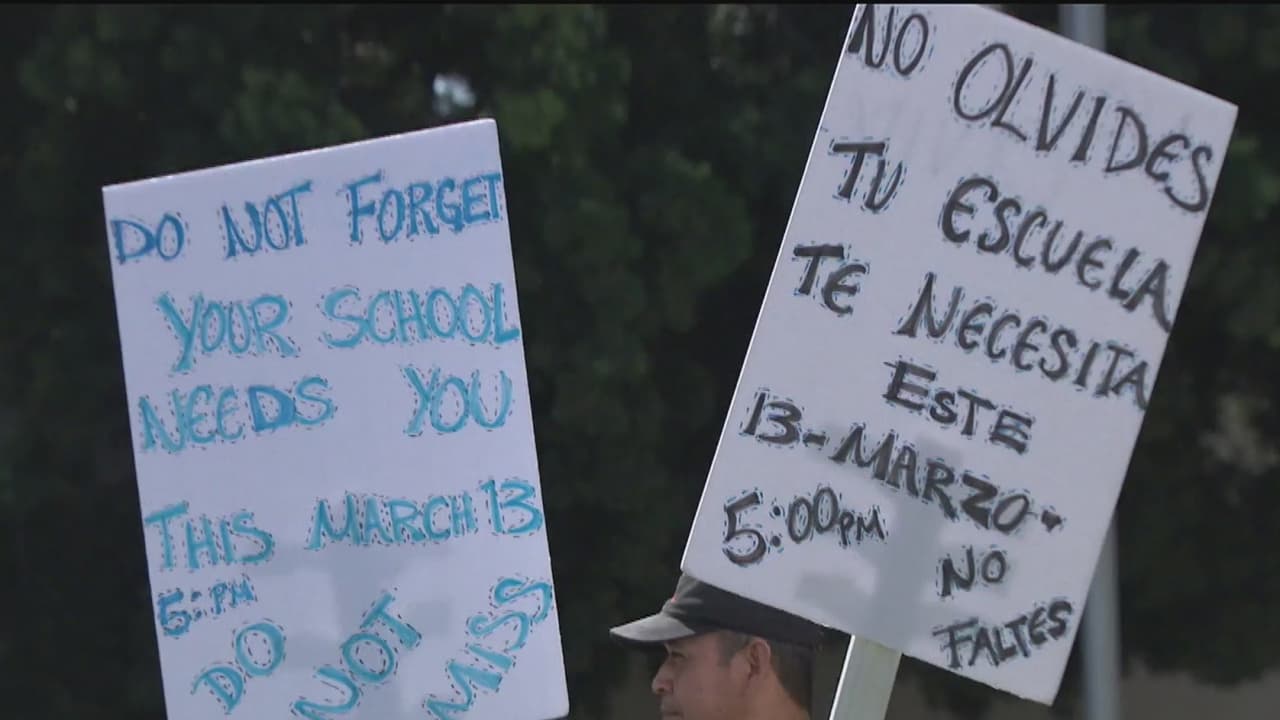 DO NOT FORGET
YOUR SCHOOL
NEEDS YOU
THIS MARCH 13
5:PM
DO NOT MISS
NO OLVIDES
TU ESCUELA
TE NECESITA
ESTE
13-MARZO.
5:00PM
NO
FALTES